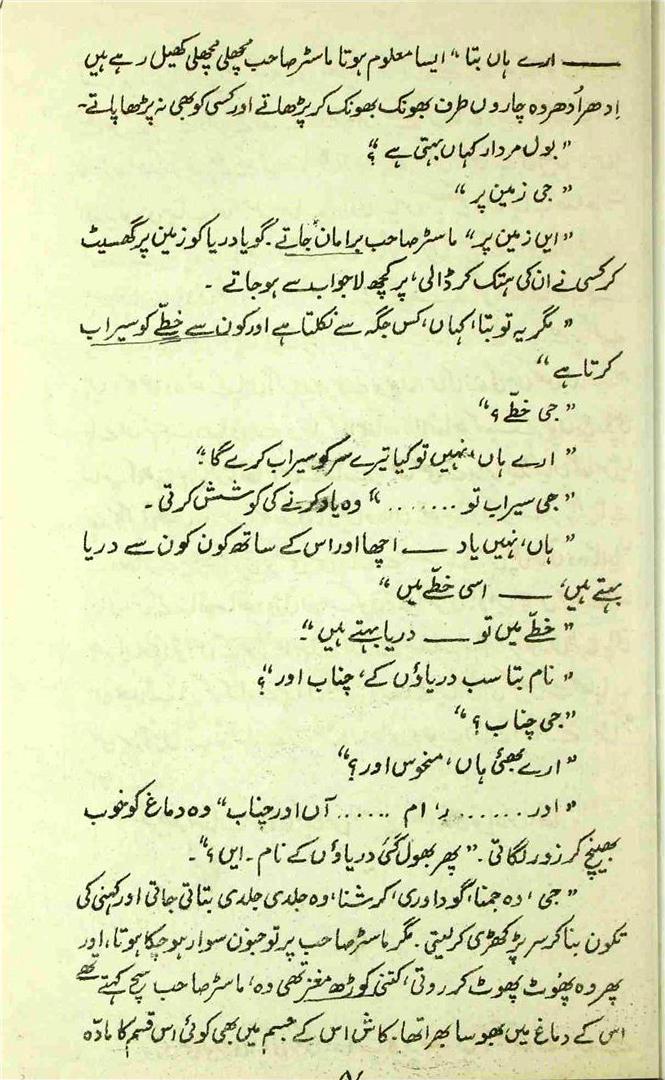 ——— ارے ہاں بتا“ ایسا معلوم ہوتا ماسٹر صاحب مچھلی مچھلی کھیل رہے ہیں
اِدھر اُدھر وہ چاروں طرف بھونک بھونک کر پڑھاتے اور کسی کو بھی نہ پڑھا پاتے۔
”بول مردار کہاں بہتی ہے؟“
”جی زمین پر“
”ایں زمین پر“ ماسٹر صاحب برا مان جاتے۔ گویا دریا کو زمین پر گھسیٹ
کر کسی نے ان کی ہتک کر ڈالی، پر کچھ لاجواب سے ہو جاتے۔
”مگر یہ تو بتا، کہاں، کس جگہ سے نکلتا ہے اور کون سے خطّے کو سیراب
کرتا ہے“
”جی خطّے؟“
”ارے ہاں، نہیں تو کیا تیرے سر کو سیراب کرے گا؟“
”جی سیراب تو ........“ وہ یاد کرنے کی کوشش کرتی۔
”ہاں، نہیں یاد —— اچھا اور اس کے ساتھ کون کون سے دریا
بہتے ہیں، —— اسی خطّے میں“
”خطّے میں تو —— دریا بہتے ہیں“۔
”نام بتا سب دریاؤں کے، چناب اور“؟
”جی چناب؟“
”ارے بھئی ہاں، منحوس اور؟“
”اور ...... ام ...... آں اور چناب“ وہ دماغ کو خوب
بھینچ کر زور لگاتی۔ ”پھر بھول گئی دریاؤں کے نام۔ ایں؟“۔
”جی، وہ جمنا، گوداوری، کرشنا، وہ جلدی جلدی بتاتی جاتی اور کہنی کی
تکون بنا کر سر پر کھڑی کر لیتی۔ مگر ماسٹر صاحب پر تو جنون سوار ہو چکا ہوتا، اور
پھر وہ پھوٹ پھوٹ کر روتی، کتنی کوڑھ مغز تھی وہ، ماسٹر صاحب سچ کہتے تھے
اس کے دماغ میں بھوسا بھرا تھا۔ کاش اس کے جسم میں بھی کوئی اس قسم کا مادّہ